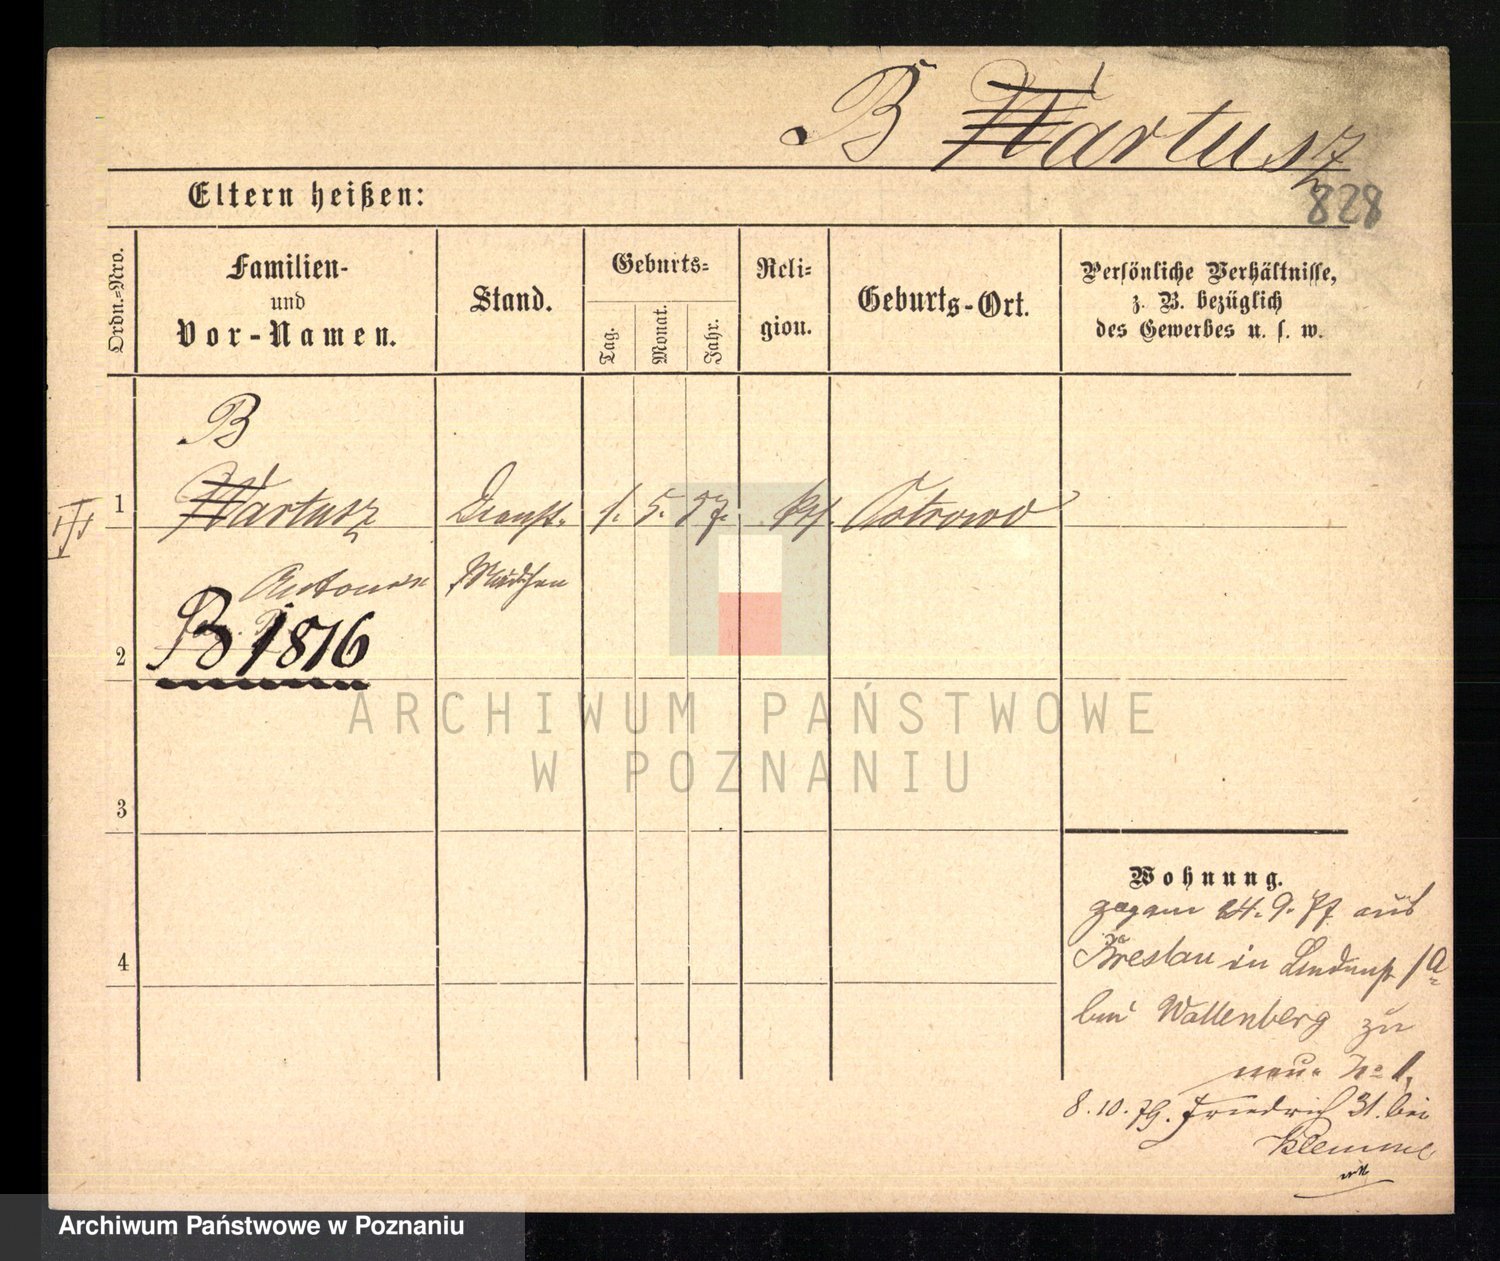 B Wartusz
828
Eltern heißen:
Ordn.-Nro.
Familien-
und
Vor-Namen.
Stand.
Geburts-
Tag.
Monat.
Jahr.
Reli-
gion.
Geburts-Ort.
Persönliche Verhältnisse,
z. B. bezüglich
des Gewerbes u. s. w.
B
1 Wartusz Dienst. 1. 5. 57. kth. Ostrowo
Mädchen
2 B 1876
ARCHIWUM PAŃSTWOWE
W POZNANIU
3
Wohnung.
24. 9. 77 aus
4 Breslau in Lindenstr 1a
bei Wallenberg zu
neu No 1.
8.10.79. Friedrich 31. bei
Klemme
Archiwum Państwowe w Poznaniu